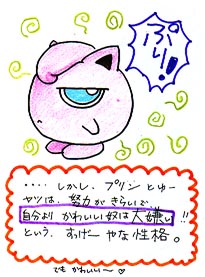 ぷり!
‥‥しかし、プリンとゆー
ヤツは、努力がきらいで
自分よりかわいい奴は大嫌い!!
という、すげーやな性格。
でもかわいい〜♡